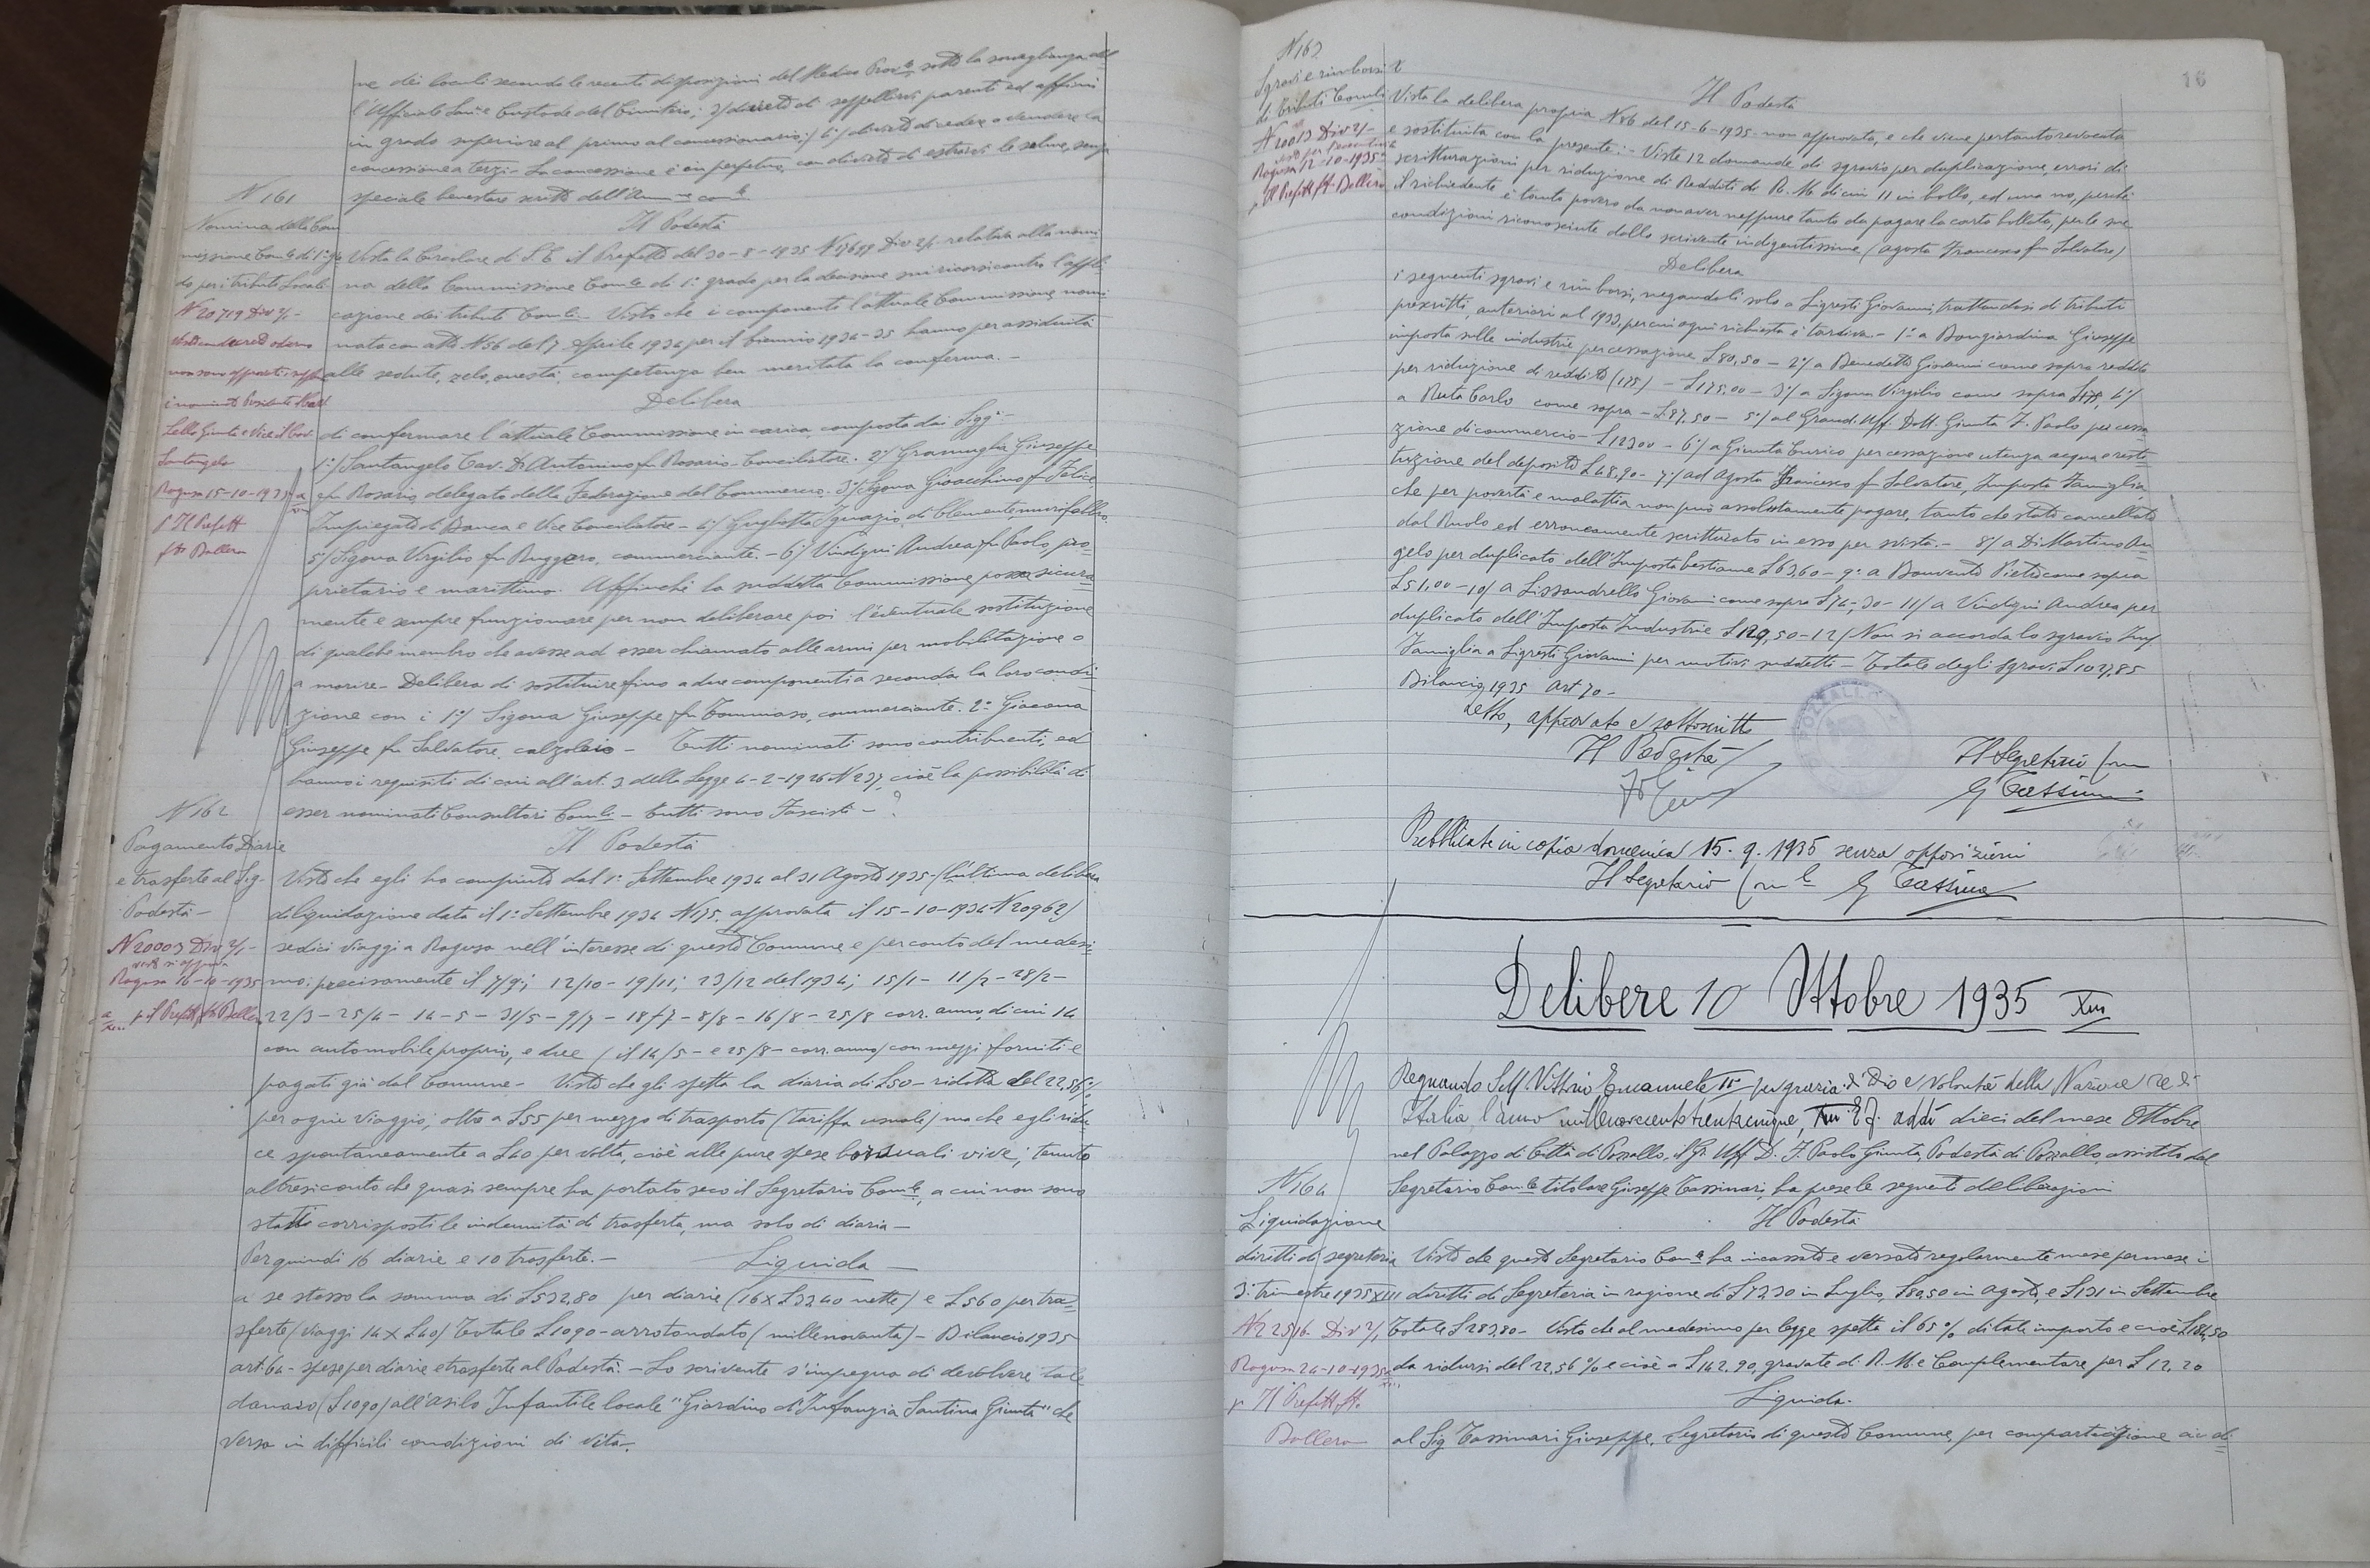 ne dei loculi secondo le recenti disposizioni del Medico Prov.le sotto la sorveglianza del
l'Ufficiale San.e e Custode del Cimitero; 3/ divieto di seppellirvi parenti ed affini
in grado superiore al primo al concessionario; 4°/ divieto di cedere o vendere la
concessione a terzi - La concessione è in perpetuo, con divieto di estrarvi le salme, senza
speciale benestare scritto dell'Amm.ne com.le
N 161
Nomina della Com
missione Com.le di 1° gra
do per i tributi Locali
N 20719 Div 2/-
Ragusa 15-10-1935
p Il Prefetto
f.to Ballero
Il Podestà
Vista la Circolare di S.E. il Prefetto del 30-8-1935 N 17697 Div 2/- relativa alla nomi
na della Commissione Com.le di 1° grado per la decisione sui ricorsi contro l'appli
cazione dei tributi Com.li - Visto che i componenti l'attuale Commissione, nomi
nata con atto N 56 del 7 Aprile 1934 per il biennio 1934-35 hanno per assiduità
alle sedute, zelo, onestà, competenza ben meritata la conferma. -
Delibera
di confermare l'attuale Commissione in carica composta dai Sigg.ri -
1°/ Santangelo Cav. Dr Antonino fu Rosario - Conciliatore. 2°/ Gramuglia Giuseppe
fu Rosario delegato della Federazione del Commercio. 3°/ Sigona Gioacchino fu Felice
Impiegato di Banca e Vice Conciliatore - 4°/ Gugliotta Ignazio di Clemente
5°/ Sigona Virgilio fu Ruggero, commerciante. - 6°/ Vindigni Andrea fu Paolo, pro-
prietario e marittimo. Affinchè la suddetta Commissione possa sicura
mente e sempre funzionare per non deliberare poi l'eventuale sostituzione
di qualche membro che avesse ad esser chiamato alle armi per mobilitazione o
a morire - Delibera di sostituire fino a due componenti a seconda la loro condi
zione con i 1°/ Sigona Giuseppe fu Tommaso, commerciante. 2° Giacona
Giuseppe fu Salvatore, calzolaio - Tutti nominati sono contribuenti, ed
hanno i requisiti di cui all'art. 3 della Legge 4-2-1926 N 237, cioè la possibilità di
esser nominati Consultori Com.li - tutti sono Fascisti - ?
N 162
Pagamento Diarie
e trasferte al Sig.
Podestà -
N 20003 Div 2/-
visto si approva
Ragusa 16-10-1935
p il Prefetto f.to Ballero
Il Podestà
Visto che egli ha compiuto dal 1° Settembre 1934 al 31 Agosto 1935 - (L'ultima delibera
di liquidazione data il 1° Settembre 1934 N 175, approvata il 15-10-1934 N 20962)
sedici viaggi a Ragusa nell'interesse di questo Comune e per conto del medesi
mo: precisamente il 7/9; 12/10 - 19/11; 23/12 del 1934; 15/1 - 11/2 - 28/2 -
22/3 - 25/4 - 14-5 - 31/5 - 9/7 - 18/7 - 8/8 - 16/8 - 25/8 corr. anno, di cui 14
con automobile proprio, e due (il 14/5 - e 25/8 - corr. anno) con mezzi forniti e
pagati già dal Comune - Visto che gli spetta la diaria di £50 - ridotta del 22,56%
per ogni viaggio, oltre a £55 per mezzo di trasporto (tariffa usuale) ma che egli ridu
ce spontaneamente a £40 per volta, cioè alle pure spese borsuali vive; tenuto
altresì conto che quasi sempre ha portato seco il Segretario Com.le, a cui non sono
stati corrisposti le indennità di trasferta, ma solo di diaria -
Per quindi 16 diarie e 10 trasferte. - Liquida -
a se stesso la somma di £532,80 per diarie (16 x £33,40 nette) e £560 per tra=
sferte (viaggi 14 x £40) Totale £1090 - arrotondato (millenovanta) - Bilancio 1935
art. 64 - spese per diarie e trasferte al Podestà. - Lo scrivente s'impegna di devolvere tale
denaro (£1090) all'Asilo Infantile locale "Giardino d'Infanzia Santina Giunta" che
versa in difficili condizioni di vita.
16
N 163
Sgravi e rimborsi
di tributi Com.li
N 20013 Div 2/-
Ragusa 12-10-1935
p Il Prefetto f.to Ballero
Il Podestà
Vista la delibera propria N 86 del 15-6-1935 non approvata, e che viene pertanto revocata
e sostituita con la presente: - Viste 12 domande di sgravio per duplicazione, errori di
scritturazioni per riduzione di Redditi di R.M. di cui 11 in bollo, ed una no, perchè
il richiedente è tanto povero da non aver neppure tanto da pagare la carta bollata, per le sue
condizioni riconosciute dallo scrivente indigentissime (Agosta Francesco fu Salvatore)
Delibera
i seguenti sgravi e rimborsi, negandoli solo a Ligresti Giovanni, trattandosi di tributi
prescritti, anteriori al 1933, per cui ogni richiesta è tardiva. - 1° a Bongiardina Giuseppe
imposta sulle industrie per cessazione £80,50 - 2°/ a Benedetto Giovanni come sopra reddito
per riduzione di reddito (175) - £175,00 - 3°/ a Sigona Virgilio come sopra £175, 4°/
a Ruta Carlo come sopra - £87,50 - 5°/ al Grand. Uff. Dott. Giunta F. Paolo per cessa
zione di commercio - £123,00 - 6°/ a Giunta Enrico per cessazione utenza acqua e resti
tuzione del deposito £48,90 - 7°/ ad Agosta Francesco fu Salvatore, Imposta Famiglia,
che per povertà e malattia non può assolutamente pagare, tanto che stato cancellato
dal Ruolo ed erroneamente scritturato in esso per svista. - 8°/ a Di Martino An-
gelo per duplicato dell'Imposta bestiame £63,60 - 9° a Bonvento Pietro come sopra
£51,00 - 10/ a Lissandrello Giovanni come sopra £74,30 - 11/ a Vindigni Andrea per
duplicato dell'Imposta Industrie £129,50 - 12/ Non si accorda lo sgravio Imp.
Famiglia a Ligresti Giovanni per motivi suddetti - Totale degli sgravi £1037,85
Bilancio 1935 Art 70 -
Letto, approvato e sottoscritto
Il Podestà
Il Segretario Com
G Tassinari
Pubblicate in copia domenica 15. 9. 1935 senza opposizioni
Il Segretario Com.le G Tassinari
Delibere 10 Ottobre 1935 XIII
Regnando S.M. Vittorio Emanuele III per grazia di Dio e volontà della Nazione re di
Italia l'anno millenovecentotrentacinque, XIII E.F. addì dieci del mese Ottobre
nel Palazzo di Città di Pozzallo, il Gr. Uff. D. F. Paolo Giunta, Podestà di Pozzallo, assistito dal
Segretario Com.le titolare Giuseppe Tassinari, ha prese le seguenti deliberazioni
N 164
Liquidazione
diritti di segreteria
3° trimestre 1935 XIII
N 22516 Div 2/,
Ragusa 24-10-1935
p Il Prefetto f.to
Ballero
Il Podestà
Visto che questo Segretario Com.le ha incassato e versato regolarmente mese per mese i
diritti di Segreteria in ragione di £72,30 in Luglio, £80,50 in Agosto, e £131 in Settembre
Totale £283,80 - Visto che al medesimo per legge spetta il 65% di tale importo e cioè £184,50
da ridursi del 22,56% e cioè a £142.90, gravate di R.M. e Complementare per £12.20
Liquida.
al Sig Tassinari Giuseppe, Segretario di questo Comune, per compartecipazione ai di